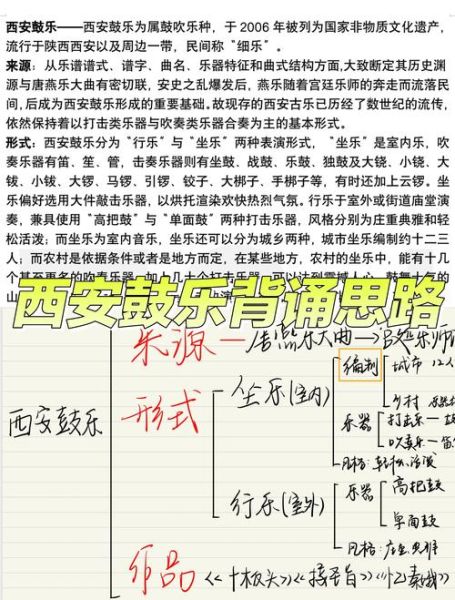 西安鼓乐——西安鼓乐为属鼓吹乐种，于 2006 年被列为国家非物质文化遗产，
流行于陕西西安以及周边一带，民间称“细乐”。
来源：从乐谱谱式、谱字、曲名、乐器特征和曲式结构方面,大致断定其历史渊
源与唐燕乐大曲有密切联，安史之乱爆发后，燕乐随着宫廷乐师的奔走而流落民
间,后成为西安鼓乐形成的重要基础。故现存的西安古乐已历经了数世纪的流传，
依然保持着以打击类乐器与吹奏类乐器合奏为主的基本形式。
形式：西安鼓乐分为“行乐”与“坐乐”两种表演形式，“坐乐”是室内乐，吹
奏乐器有笛、笙、管，击奏乐器则有坐鼓、战鼓、乐鼓、独鼓及大铙、小铙、大
钹、小钹、大锣、马锣、引锣、铰子、大梆子、手梆子等，有时还加上云锣。坐
乐偏好选用大件敲击乐器，以烘托渲染欢快热烈气氛。行乐于室外或街道庙堂演
奏，兼具使用“高把鼓”与“单面鼓”两种打击乐器，风格分别为庄重典雅和轻
松活泼；而坐乐为室内音乐，坐乐还可以分为城乡两种，城市坐乐编制约十二三
人；而农村是依据条件或者是地方而定，在某些地方，农村的坐乐中，能有十几
西安鼓乐背诵思路
来源—唐燕乐大曲→宫廷乐师
西安鼓乐
形式
坐乐(室内)
编制
城市 12人
乡村
乐器
打击乐—
吹奏乐—笛
风格:轻松、活泼
行乐(室外)
乐器
高把鼓
单面鼓
风格:庄重典雅
作品《十板头》《接圣旨》《忆秦娥》